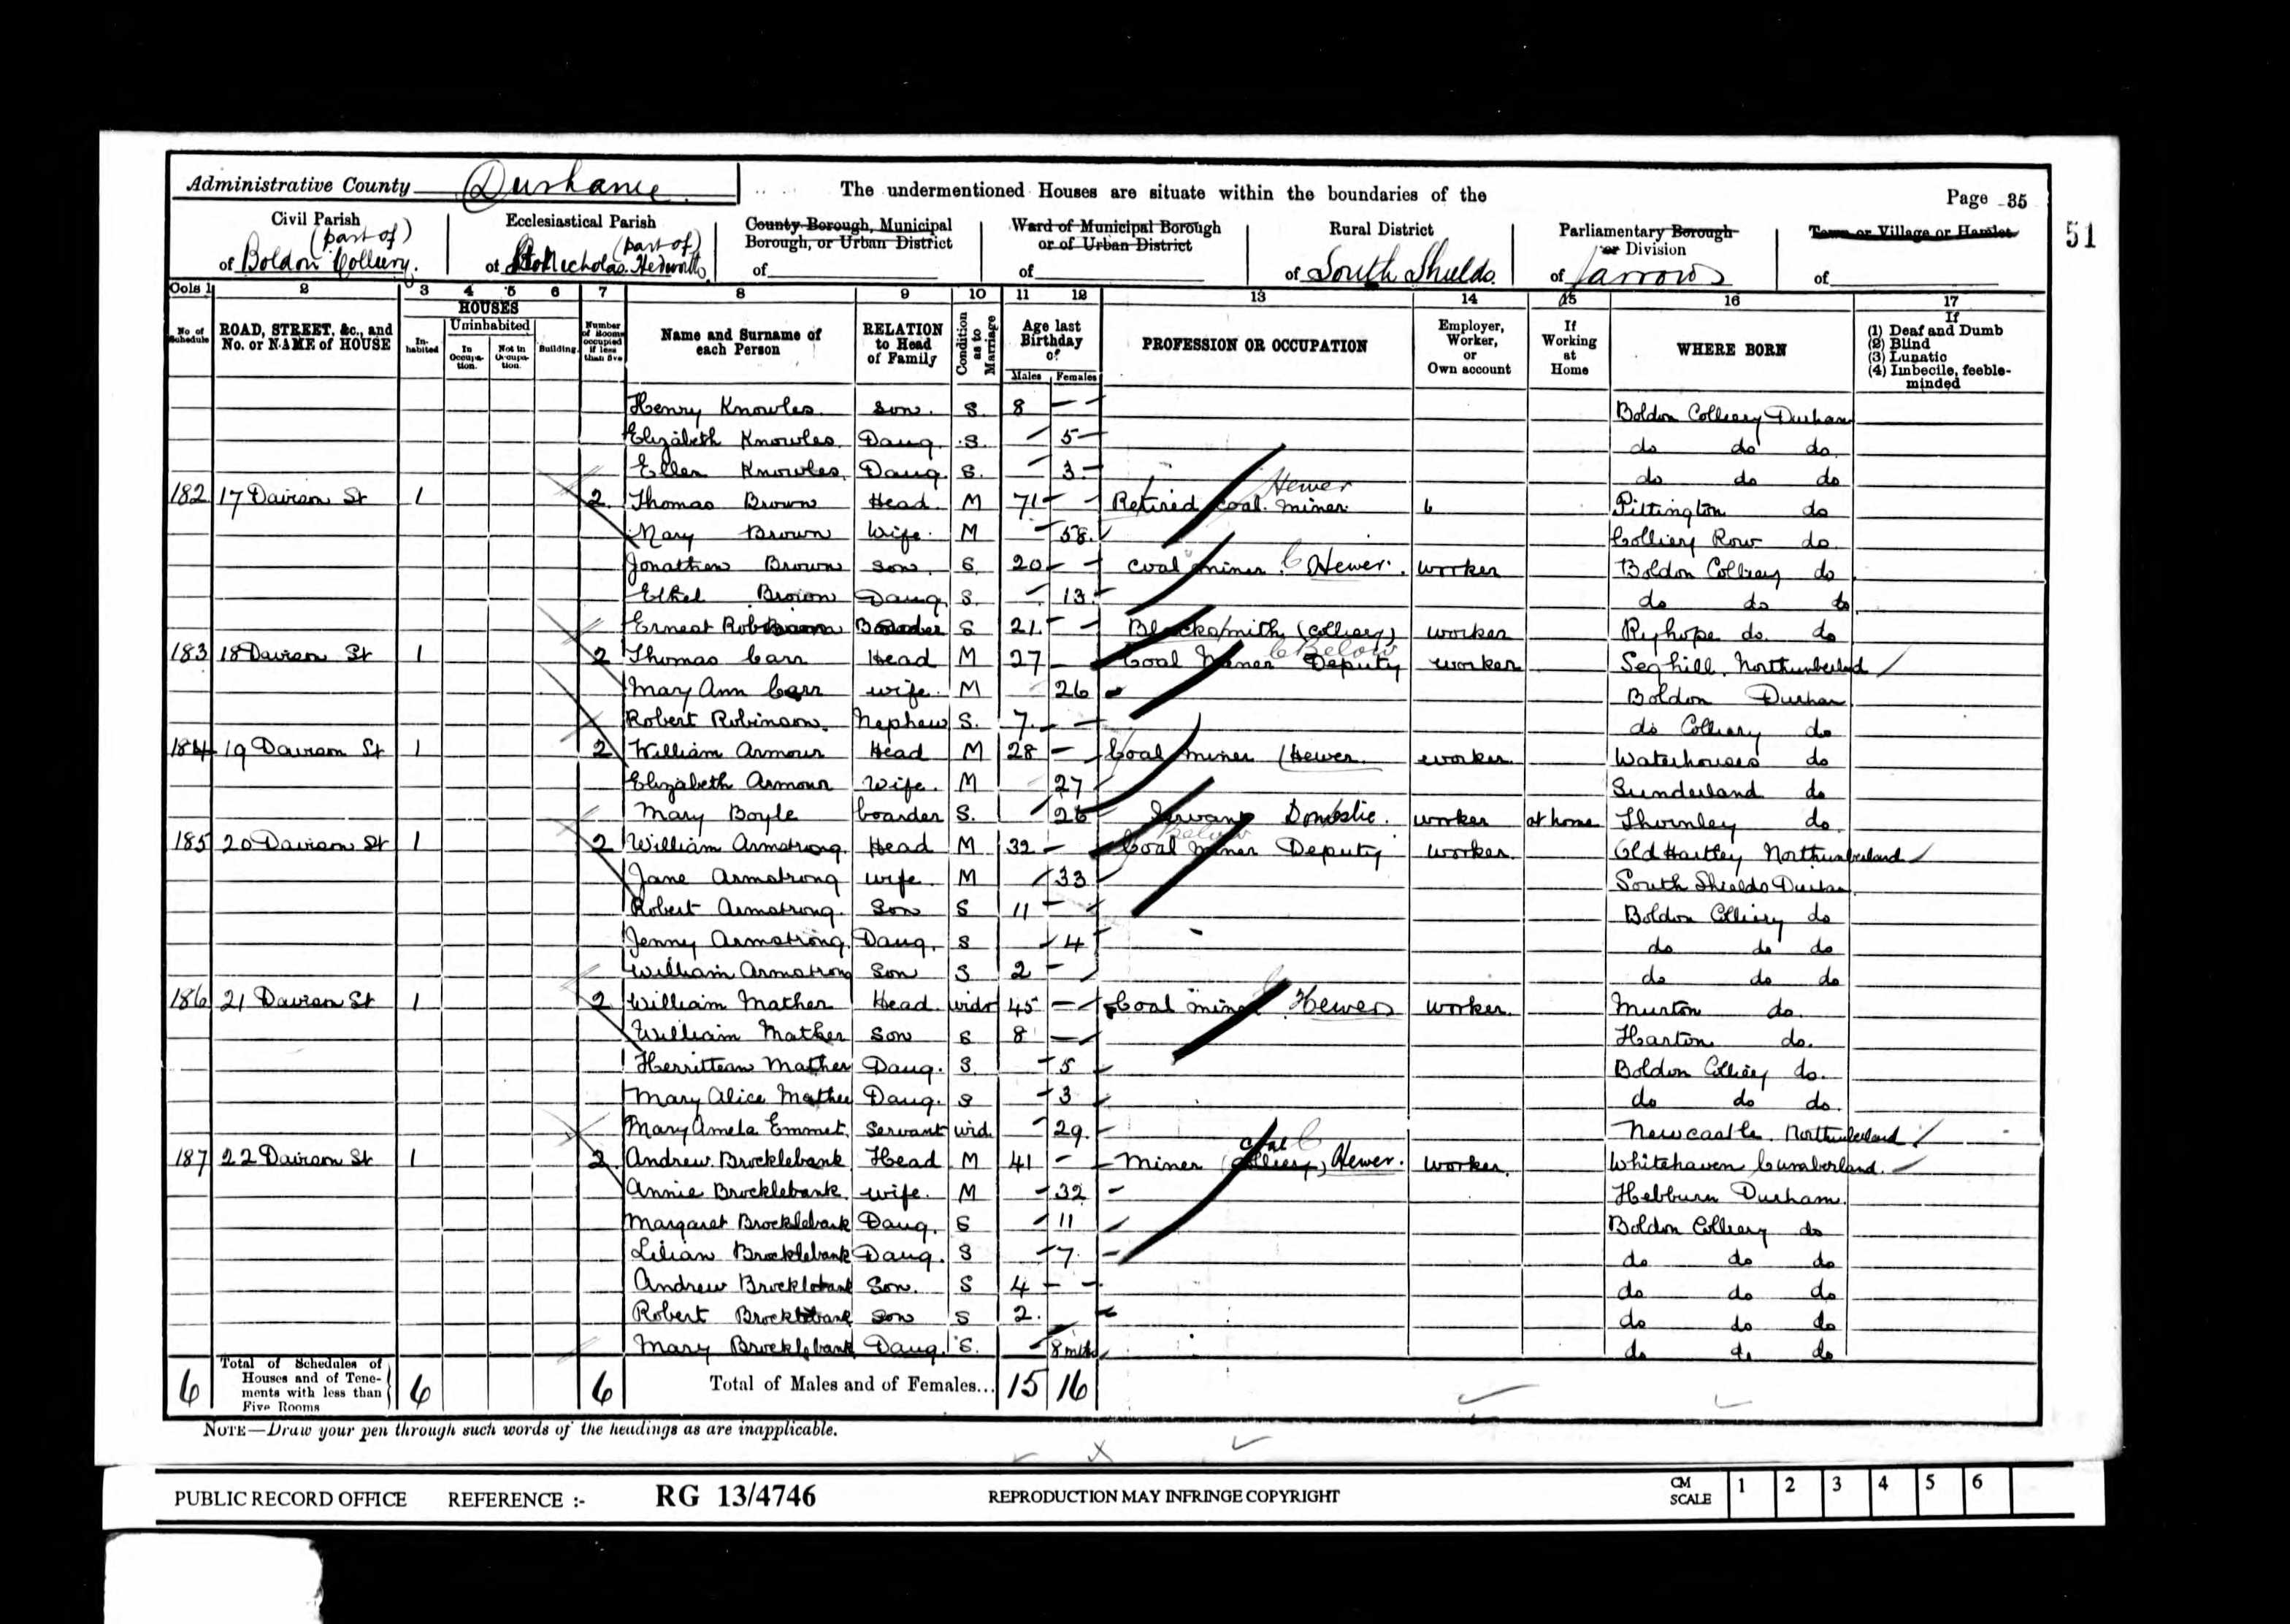 Administrative County Durham
The undermentioned Houses are situate within the boundaries of the
Page 35
51
Civil Parish (part of) of Boldon Colliery.
Ecclesiastical Parish (part of) of St Nicholas. Hedworth
County Borough, Municipal Borough, or Urban District of
Ward of Municipal Borough or of Urban District of
Rural District of South Shields.
Parliamentary Borough or Division of Jarrow
Town or Village or Hamlet of
Cols 1 2 3 4 5 6 7 8 9 10 11 12 13 14 15 16 17
No. of Schedule
ROAD, STREET, &c., and No. or NAME of HOUSE
HOUSES
In-habited
Uninhabited
In Occupa-tion.
Not in Occupa-tion.
Building.
Number of Rooms occupied if less than five
Name and Surname of each Person
RELATION to Head of Family
Condition as to Marriage
Age last Birthday of
Males Females
PROFESSION OR OCCUPATION
Employer, Worker, or Own account
If Working at Home
WHERE BORN
If
(1) Deaf and Dumb
(2) Blind
(3) Lunatic
(4) Imbecile, feeble-minded
Henry Knowles Son. S. 8 Boldon Colliery Durham
Elizabeth Knowles. Daug. S. 5 do do do.
Ellen Knowles. Daug. S. 3 do do do
182 17 Davison St 1 2 Thomas Brown Head. M 71 Retired coal miner Hewer Pittington do
Mary Brown Wife. M 58. Colliery Row do.
Jonathan Brown Son. S. 20 coal miner. Hewer. worker Boldon Colliery do
Ethel Brown Daug. S. 13 do do do
Ernest Robinson Boarder S 21 Blacksmith (colliery) worker Ryhope do. do
183 18 Davison St 1 2 Thomas Carr Head M 27 Coal Miner Deputy Below worker Seghill. Northumberland
Mary Ann Carr wife. M 26 Boldon Durham
Robert Robinson. Nephew S. 7 do Colliery do
184 19 Davison St 1 2 William Armour Head M 28 Coal miner (Hewer worker. Waterhouses do
Elizabeth Armour Wife. M 27 Sunderland do
Mary Boyle boarder S. 26 Servant Domestic. worker at home Thornley do.
185 20 Davison St 1 2 William Armstrong. Head M 32 Coal Miner Deputy Below worker. Old Hartley Northumberland
Jane Armstrong wife. M 33 South Shields Durham
Robert Armstrong. Son S 11 Boldon Colliery do
Jenny Armstrong. Daug. S 4 do do do
William Armstrong Son S 2 do do do
186 21 Davison St 1 2 William Mather Head widr 45 Coal miner Hewer worker. Murton do.
William Mather Son S 8 Harton do.
Herrittean Mather Daug. S. 5 Boldon Colliery do.
Mary Alice Mather Daug. S 3 do do do.
Mary Amela Emmet. Servant wid. 29. Newcastle. Northumberland
187 22 Davison St 1 2 Andrew. Brocklebank Head M 41 Miner (Colliery) coal Hewer. worker. Whitehaven Cumberland.
Annie Brocklebank. wife. M 32 Hebburn Durham.
Margaret Brocklebank Daug. S 11 Boldon Colliery do
Lilian Brocklebank Daug. S 7 do do do
Andrew Brocklebank Son. S 4 do do do
Robert Brocklebank Son S 2. do do do
Mary Brocklebank Daug. S. 8 mths do do do
6 Total of Schedules of Houses and of Tene-ments with less than Five Rooms 6 6 Total of Males and of Females... 15 16
NOTE—Draw your pen through such words of the headings as are inapplicable.
PUBLIC RECORD OFFICE REFERENCE :- RG 13/4746 REPRODUCTION MAY INFRINGE COPYRIGHT CM SCALE 1 2 3 4 5 6